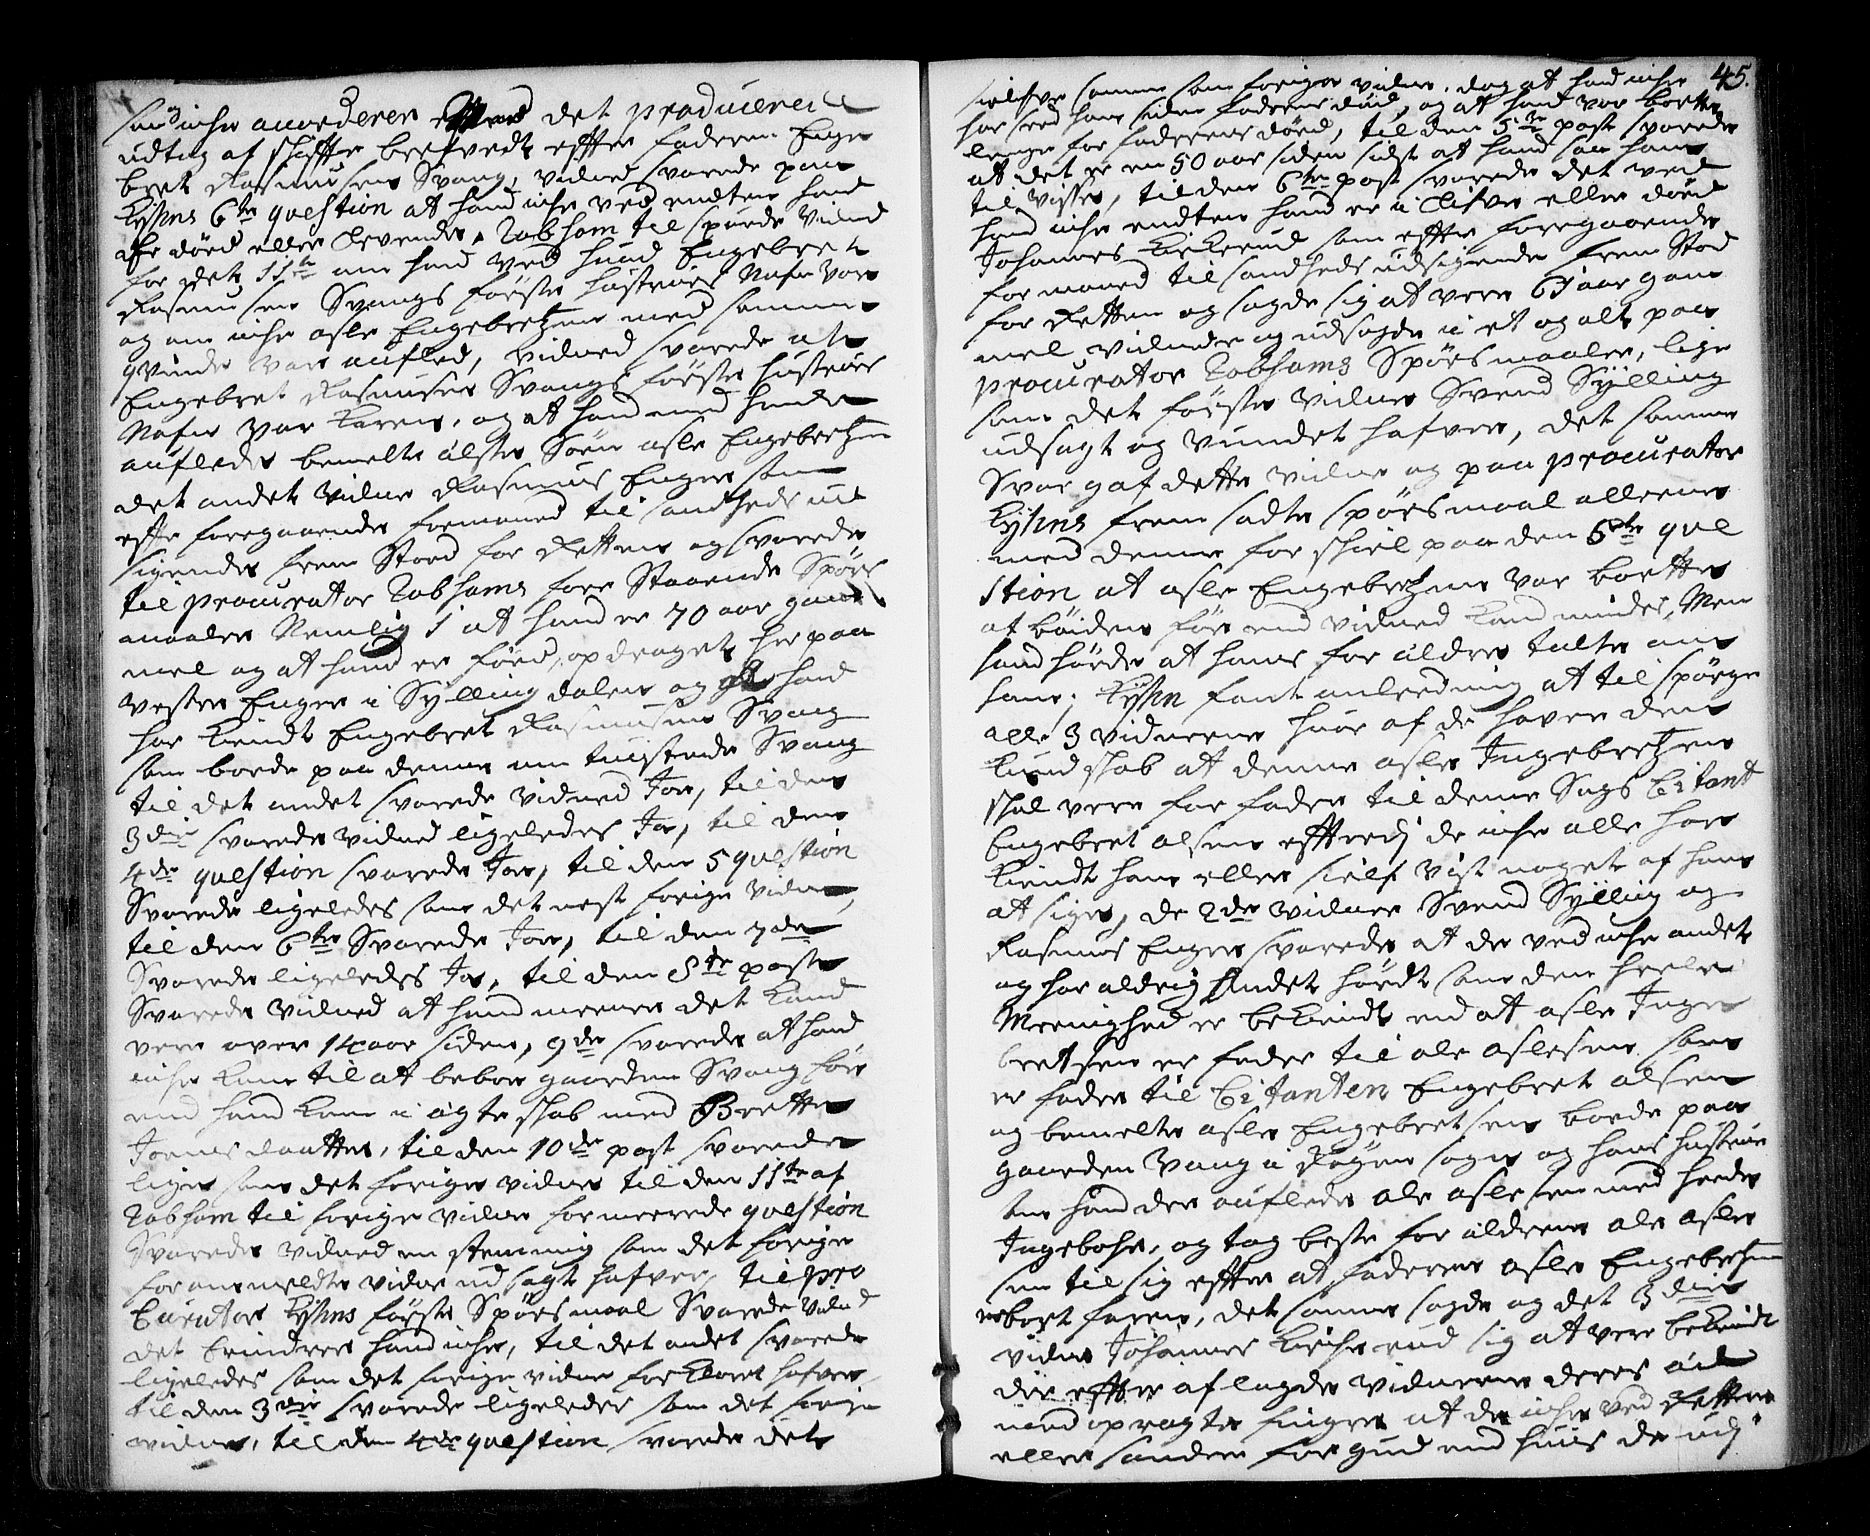 saa icke accorderer med det producerede
udtog af skiffte brefvedt effter faderen Enge
bret Rasmusen Svang, vidned svarede paa
Kyhns 6te question at hand icke ved endten hand
er död eller levende, Robsam til spurde vidned
for det 11te om hand ved huad Engebret
Rasmusen Svangs förste hustrues Nafn var
og om icke asle Engebretzen med samme
qvinde var auflet, vidned svarede at
Engebret Rasmusen Svangs förste hustrues
Nafn var Karen, og at hand med hende
auflede bemelte älste Sön asle Engebretzen
det andet vidne Rasmus Enger som
effter foregaaende formaned til sandheds ud
sigende frem stoed for Retten og svarede
til procurator Robsams fore staaende Spörs
maaler Nemlig 1 at hand er 70 aar gam
mel og at hand er föed, opdraget her paa
vestre Enger i Syllingdalen og at hand
har kiendt Engebret Rasmusen Svang
som boede paa denne om tuistede Svang
til det andet svarede vidned Ja, til den
3die svarede vidned ligeledes Ja, til den
4de question svarede Ja, til den 5 question
Svarede ligeledes som det nest forige vidne,
til den 6te Svarede Ja, til den 7de
Svarede ligeledes Ja, til den 8te post
Svarede vidned at hand meener det kand
vere over 14 aar siden, 9de svarede at hand
icke kom til at beboe gaarden Svang för
end hand kom i ägteskab med Brette
Joensdaatter, til den 10de post svarede
liges som det forige vidne til den 11te af
Robsam til forige vidne formeerede question
Svarede vidned en stemmig som det forige
foranmeldte vidne udsagt hafver, til pro
Curator Kyhns förste Spörsmaal Svarede vidned
det Erindrer hand icke, til det andet svarede
ligeledes som det forige vidne forklaret hafver,
til den 3die svarede ligeledes som det forige
vidne, til den 4de question svarede det
45.
sielfve samme som forige vidne, dog at hand icke
har seed ham siden faderens död, og at hand var borte
lenge for faderens död, til den 5te post svarede
at det er en 50 aar siden sidst at hand saa ham
til visse, til den 6te post svarede det ved
hand icke endten hand er i lifve eller död
Johannes Kirkerud som effter foregaaende
formaned til sandheds udsigende frem stod
for Retten og sagde sig at vere 65 aar gam
mel, vidnede og udsagde i et og alt paa
procurator Robsams Spörsmaaler, lige
som det förste vidne Svend Sylling
udsagt og vundet hafver, det samme
Svar gaf dette vidne og paa procurator
Kyhns frem satte spörsmaal alleene
med denne forskiel paa den 5te que
stion at asle Engebretzen var borte
at böiden för end vidned kand minde, Men
hand hörde at hans foräldre talte om
ham; Kyhn fant anleedning at til spörge
alle 3 vidnerne huor af de haver den
kundskab at denne asle Ingebretzen
skal vere far fader til denne Sags Citant
Engebret olsen efftredj de icke alle har
kiendt ham eller sielf vist noget af ham
at sige, de 2de vidner Svend Sylling og
Rasmus Enger svarede at de ved icke andet
og har aldrig andet hördt som den heele
Meenighed er bekiendt end at asle Inge
bretsen er fader til ole aslesen som
er fader til Citanten Engebret olsen
og bemelte asle Engebretsen boede paa
gaarden Vang i Röyen sogn og hans hustrue
den hand der auflede ole aslesen med heede
Ingebohr, og tog beste foräldrene ole asle
sen til sig effter at faderen asle Engebretzen
var bort faren, det samme sagde og det 3die
vidne Johannes Kirkerud sig at vere bekiendt
der effter aflagde vidnerne deres eed
med opragte finger at de icke ved rettere
eller sandere for gud end huis de udj